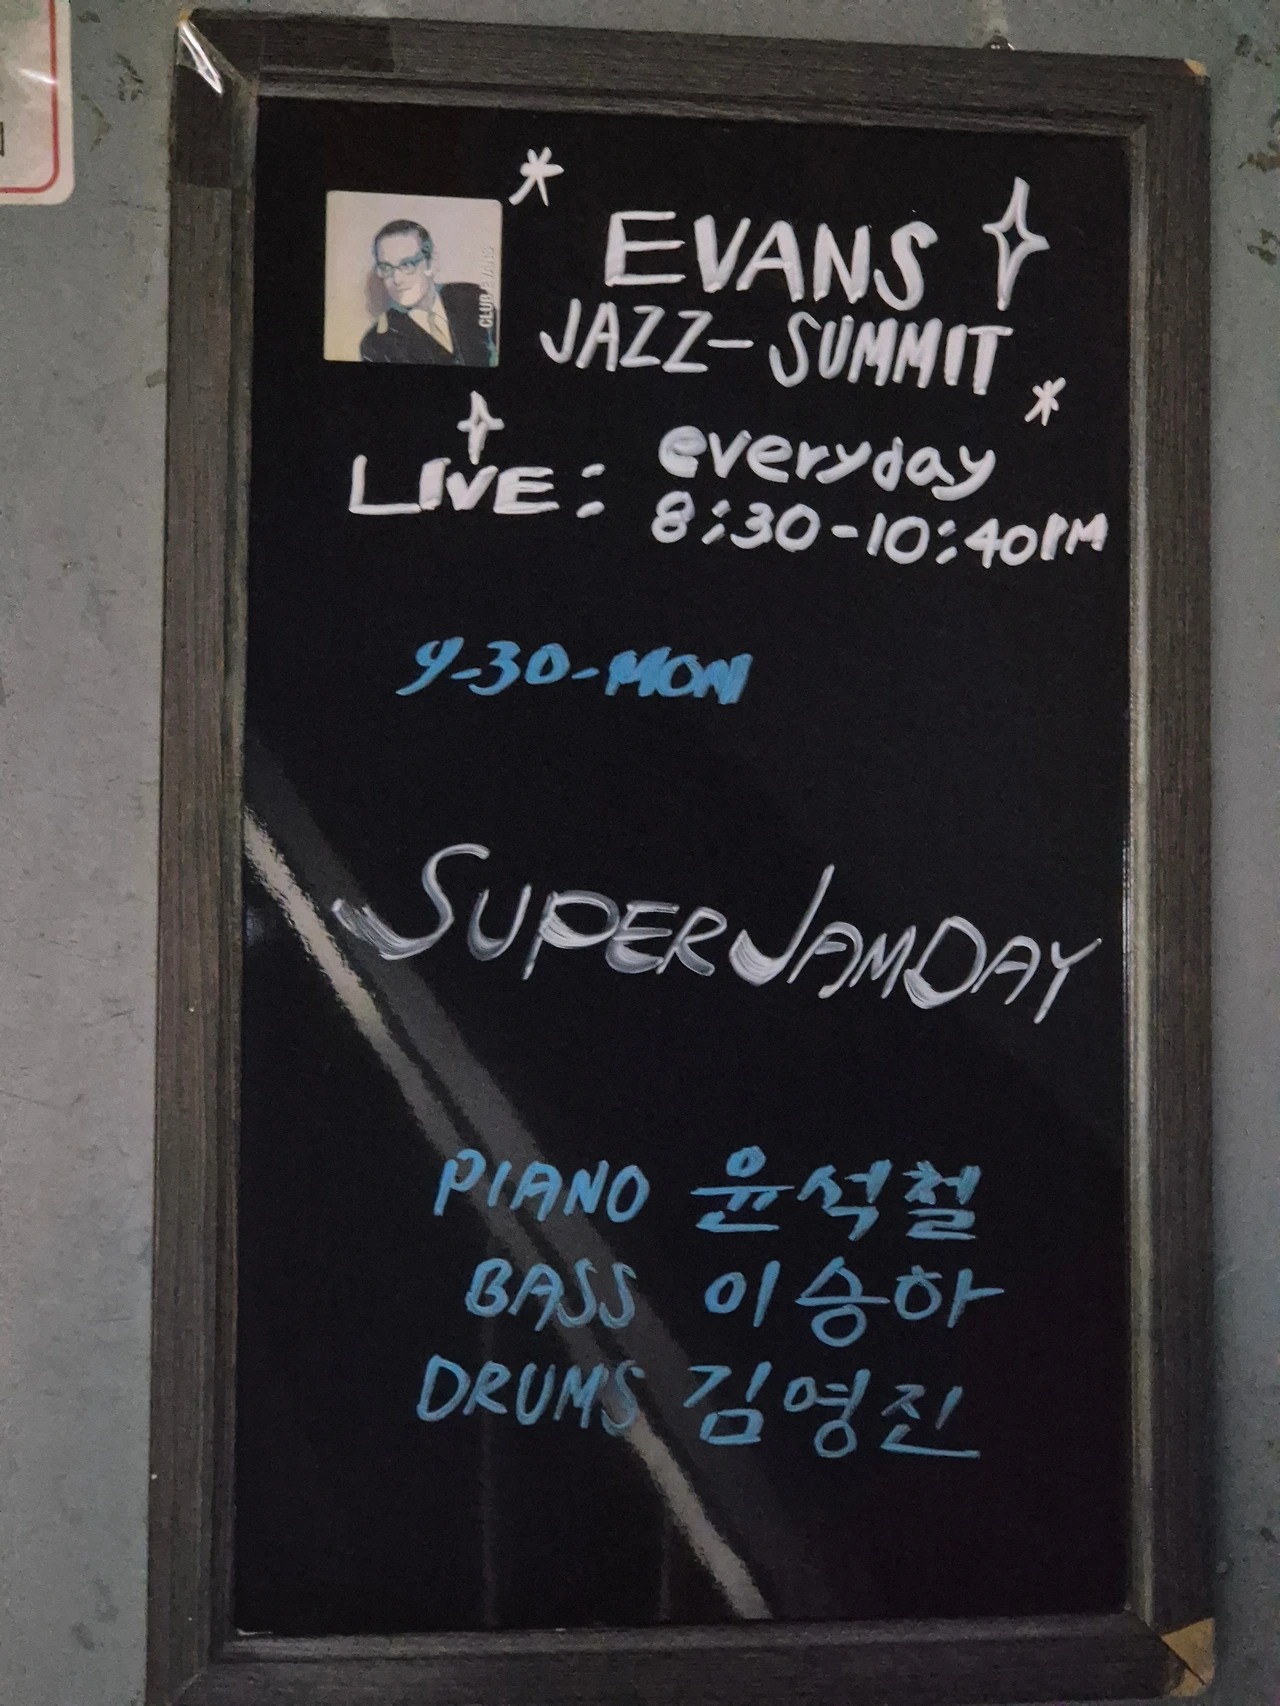 CLUB EVANS
EVANS
JAZZ-SUMMIT
LIVE: everyday
8:30-10:40PM
9-30-MON
SUPERJAMDAY
PIANO 윤석철
BASS 이승하
DRUMS 김영진